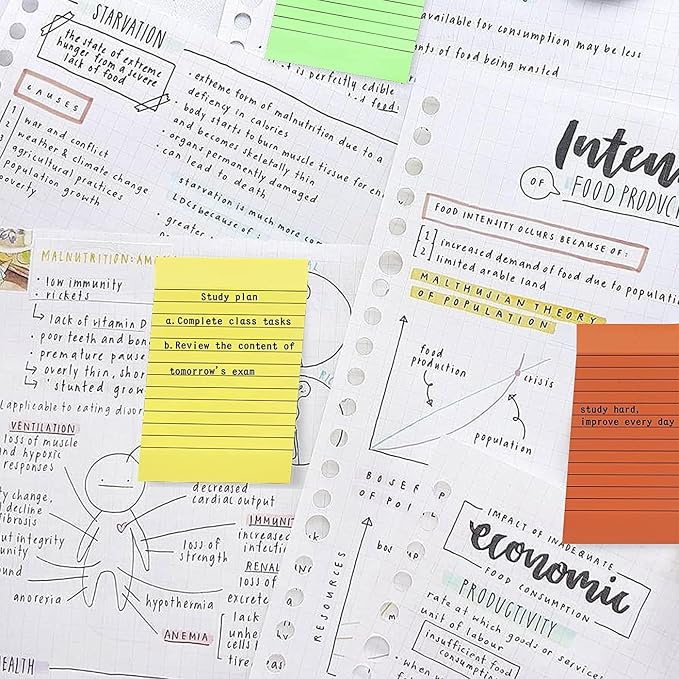 STARVATION
the state of extreme
hunger from a severe
lack of food
CAUSES
1 war and conflict
2 weather & climate change
agricultural practices
population growth
poverty
• extreme form of malnutrition due to a
deficiency in calories
• body starts to burn muscle tissue for
and becomes skeletally thin
• organs permanently damaged
• can lead to death
starvation is much more
LDCs because of
• greater
available for consumption may be less
of food being wasted
is perfectly edible
food
OF
FOOD
FOOD INTENSITY OCCURS BECAUSE OF:
1 increased demand of food due to
2 limited arable land
MALTHUSIAN THEORY
OF POPULATION
food
production
crisis
population
MALNUTRITION:
• low immunity
• rickets
↳ lack of vitamin D
• poor teeth and
• premature
↳ overly thin, short
↳ 'stunted
applicable to eating
Study plan
a.Complete class tasks
b.Review the content of
tomorrow's exam
study hard,
improve every day
VENTILATION
loss of muscle
and hypoxic
responses
change,
decline
fibrosis
integrity
anorexia
hypothermia
ANEMIA
decreased
cardial output
increased
loss of
strength
RENAL
loss of
lack
cells
HEALTH
RESOURCES
IMPACT OF INADEQUATE
economic
FOOD CONSUMPTION
PRODUCTIVITY
rate at which goods or services
unit of labour
insufficient food
consumption
• when